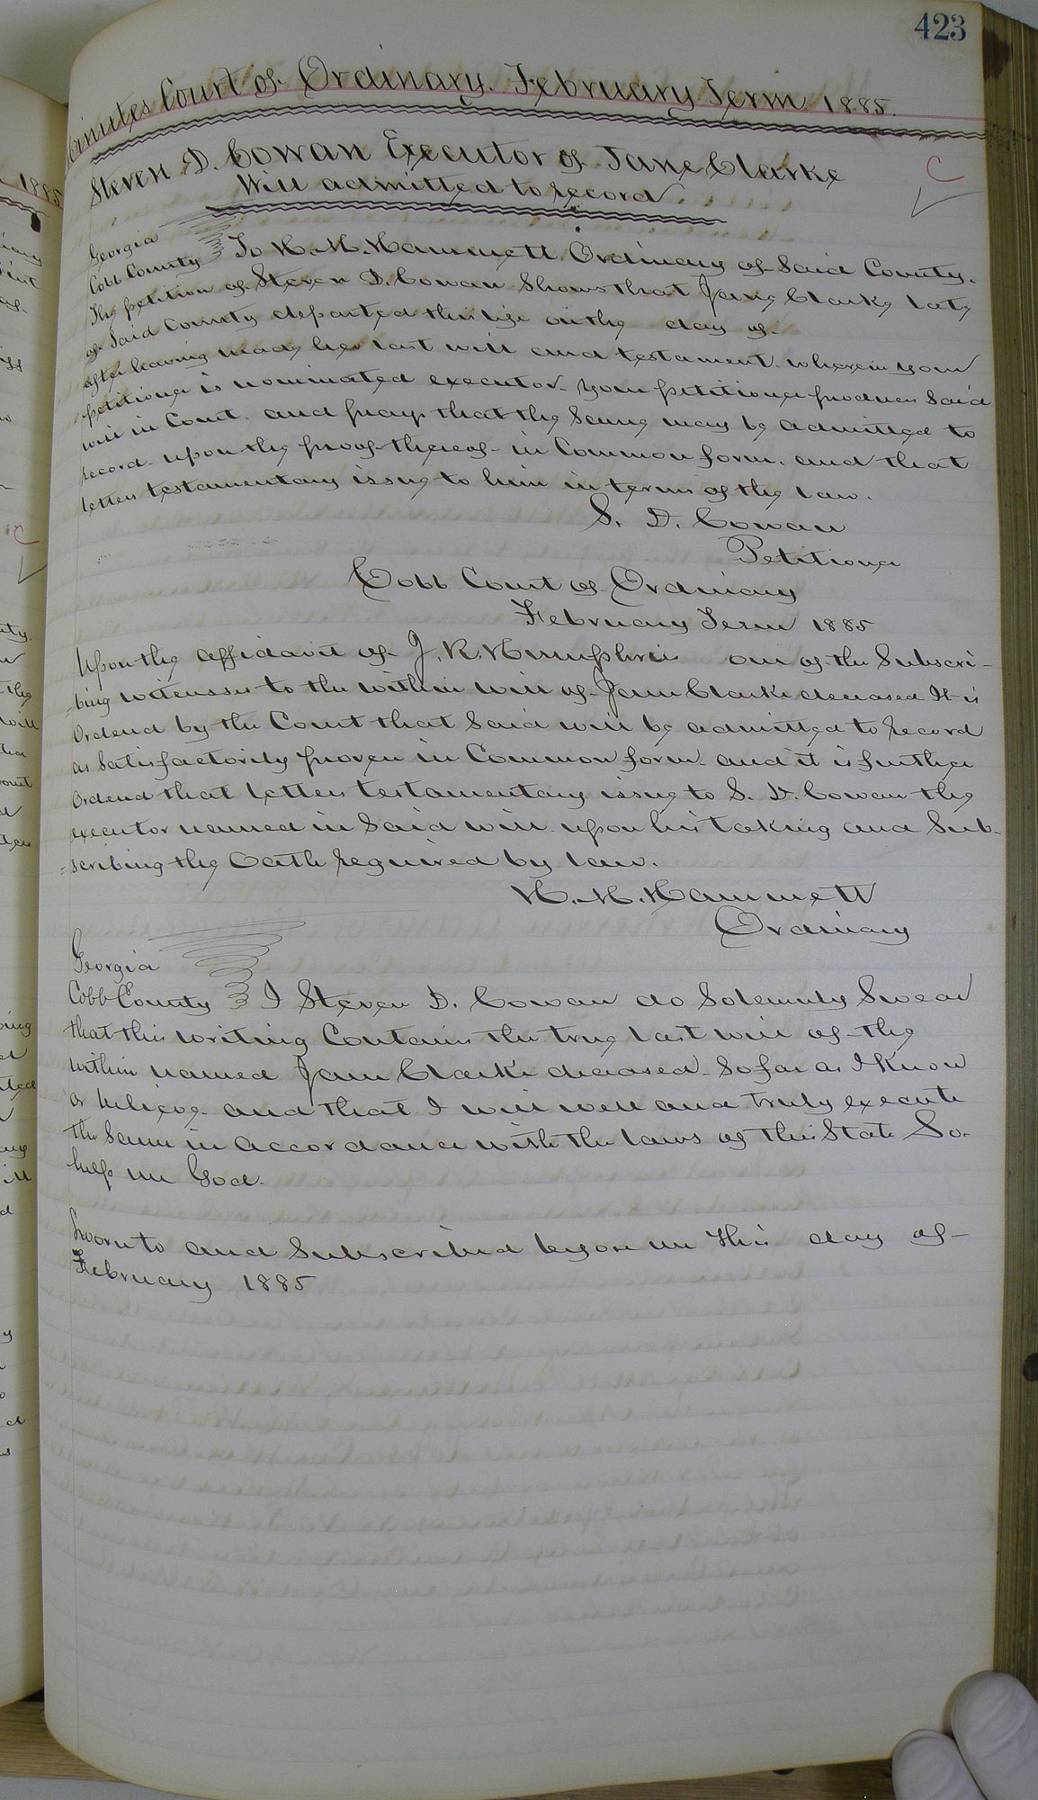 423
Minutes Court of Ordinary. February Term 1885.
Steven D. Cowan Executor of Jane Clarke
Will admitted to record
C
Georgia
Cobb County To H. M. Hammett Ordinary of Said County.
The petition of Steven D. Cowan Shows that Jane Clarke late
of Said County departed this life on the day of
after having made her last will and testament wherein your
petitioner is nominated executor. Your petitioner produces Said
will in Court. and prays that the Same may be admitted to
record upon the proof thereof in Common form. and that
letters testamentary issue to him in terms of the law.
S. D. Cowan
Petitioner
Cobb Court of Ordinary
February Term 1885
Upon the affidavit of J. R. Humphries one of the Subscri-
-bing witnesses to the within will of Jane Clarke deceased It is
Ordered by the Court that Said will be admitted to record
as Satisfactorily proven in Common form and it is further
Ordered that letters testamentary issue to S. D. Cowan the
executor named in Said will upon his taking and Sub-
=scribing the Oath required by law.
H. M. Hammett
Ordinary
Georgia
Cobb County I Steven D. Cowan do Solemnly Swear
that this writing Contains the true last will of the
within named Jane Clarke deceased So far as I Know
or believe and that I will well and truly execute
the Same in accordance with the laws of this State So
help me God.
Sworn to and Subscribed before me this day of
February 1885